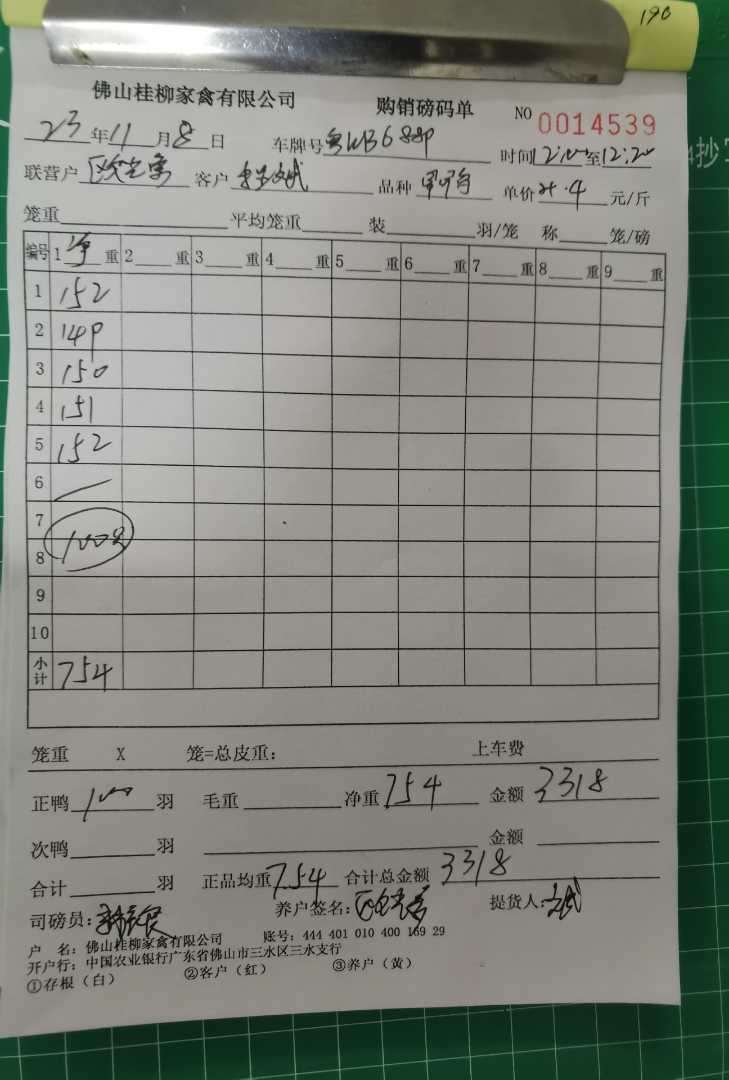 190
佛山桂柳家禽有限公司 购销磅码单 NO 0014539
23年11月8日 车牌号 时间12:00至12:20
联营户 客户 品种 单价 .4 元/斤
笼重 平均笼重 装 羽/笼 称 笼/磅
编号 1 净 重 2 重 3 重 4 重 5 重 6 重 7 重 8 重 9 重
1 152
2 149
3 150
4 151
5 152
6
7
8
9
10
小计 754
笼重 X 笼=总皮重: 上车费
正鸭 100 羽 毛重 净重 754 金额 3318
次鸭 羽 金额
合计 羽 正品均重 7.54 合计总金额 3318
司磅员: 养户签名: 提货人:
户 名: 佛山桂柳家禽有限公司 账号: 444 401 010 400 169 29
开户行: 中国农业银行广东省佛山市三水区三水支行
①存根(白) ②客户(红) ③养户(黄)